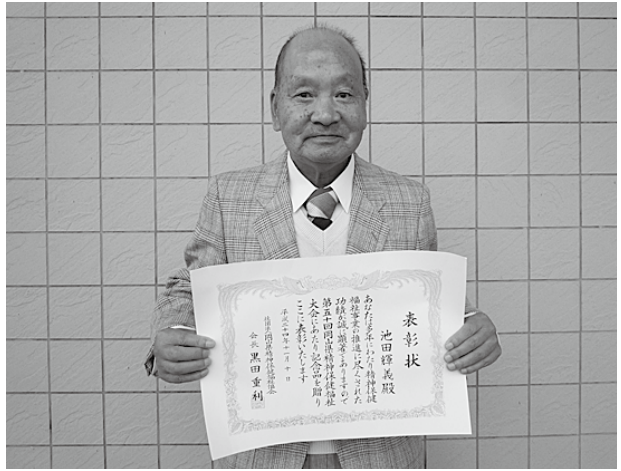 表彰状
池田輝義殿
あなたは多年にわたり精神保健
福祉事業の推進に尽くされた
功績が誠に顕著でありますので
第五十回岡山県精神保健福祉
大会にあたり記念品を贈り
ここに表彰いたします
平成二十四年十一月十日
会長 黒田重利